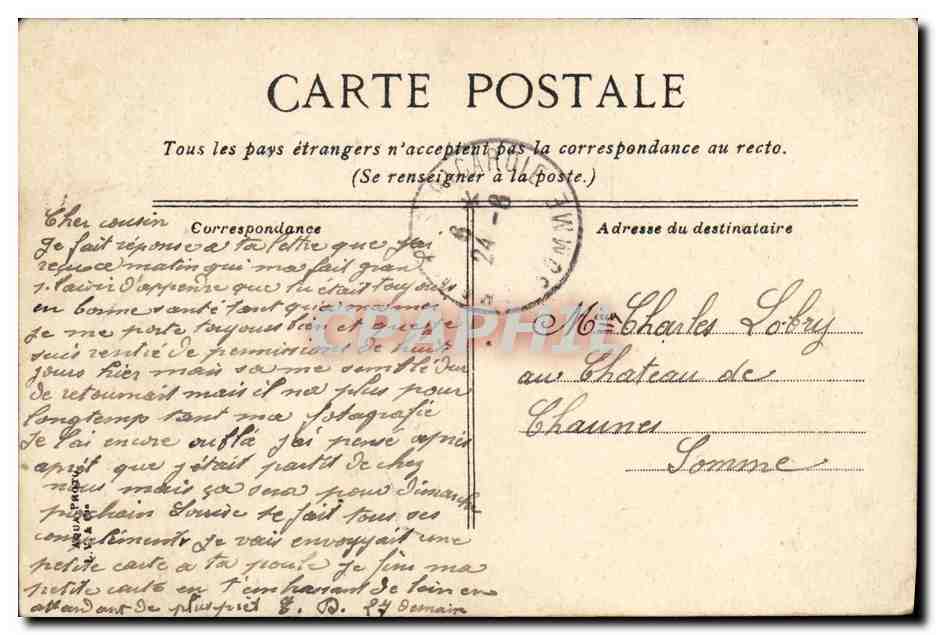 CARTE POSTALE
Tous les pays étrangers n'acceptent pas la correspondance au recto.
(Se renseigner à la poste.)
Correspondance
Adresse du destinataire
Cher cousin
Je fait réponse a ta lettre que j'ai
recu ce matin qui ma fait gran
plaisir d'apprendre que tu etait toujours
en bonne santé tant qu'a moi
je me porte toujours bien et que je
suis rentré de permissions de huit
jours hier mais sa me semblé dur
de retournait mais il na plus pour
longtemp tant ma fotografie
Je l'ai encore oublá j'ai pensé après
aprèt que j'était partit de chez
nous mais ça sera pour dimanche
prochain Louise te fait tous ses
compliments Je vais envoyait une
petite carte a ta poule je fini ma
petite carte en t'embrassant de loin en
attandant de plus prèt E. D. 27 demain
Charles Lobry
au Chateau de
Chaunes
Somme
SOMME
6
24 - 8
AQUA PHOTO
L. V. & Cie
CPAPHIL